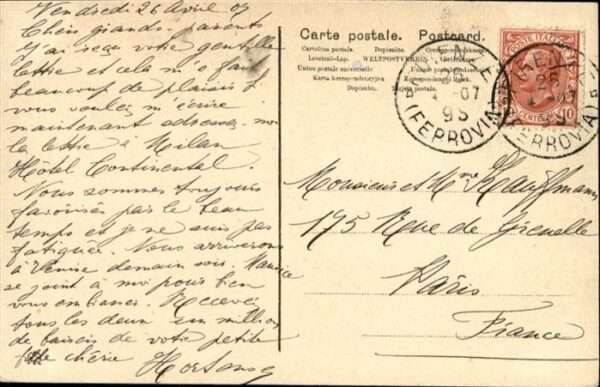 Vendredi 26 Avril 07
Chers grands parents
J'ai reçu votre gentille
lettre et cela m'a fait
beaucoup de plaisir si
vous voulez m'écrire
maintenant adressez-moi
la lettre à Milan
Hôtel Continental.
Nous sommes toujours
favorisés par le beau
temps et je ne suis pas
fatiguée. Nous arriverons
à Venise demain soir. Maurice
se joint à moi pour bien
vous embrasser. Recevez
tous les deux un million
de baisers de votre petite
fille chérie Hortense
Carte postale. Postcard.
Cartolina postale. Dopisnice.
Levelező-Lap. WELTPOSTVEREIN
Union postale universelle
Karta korrespondencyjna
Dopisnica.
POSTE ITALIANE
CENTESIMI 10
07
9S
(FERROVIA)
FIRENZE
26
07
9S
(FERROVIA)
Monsieur et Mme Kauffmann
175 Rue de Grenelle
Paris
France